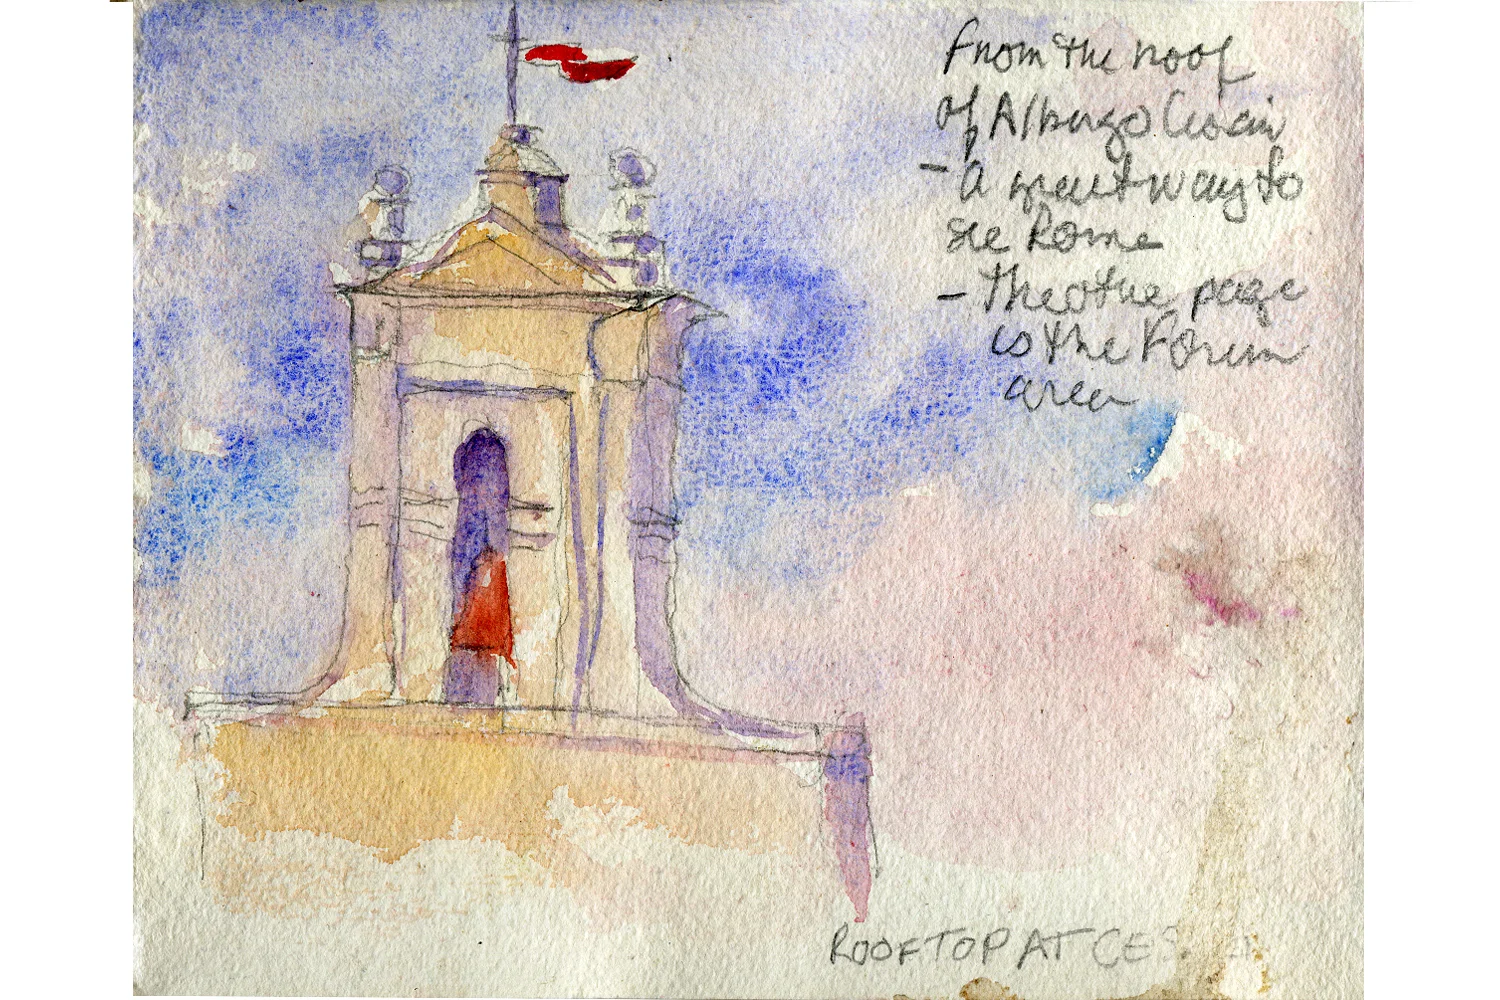 From the roof
of Albergo Cesàri
- A great way to
see Rome
- The other page
is the Forum
area
ROOFTOP AT CES